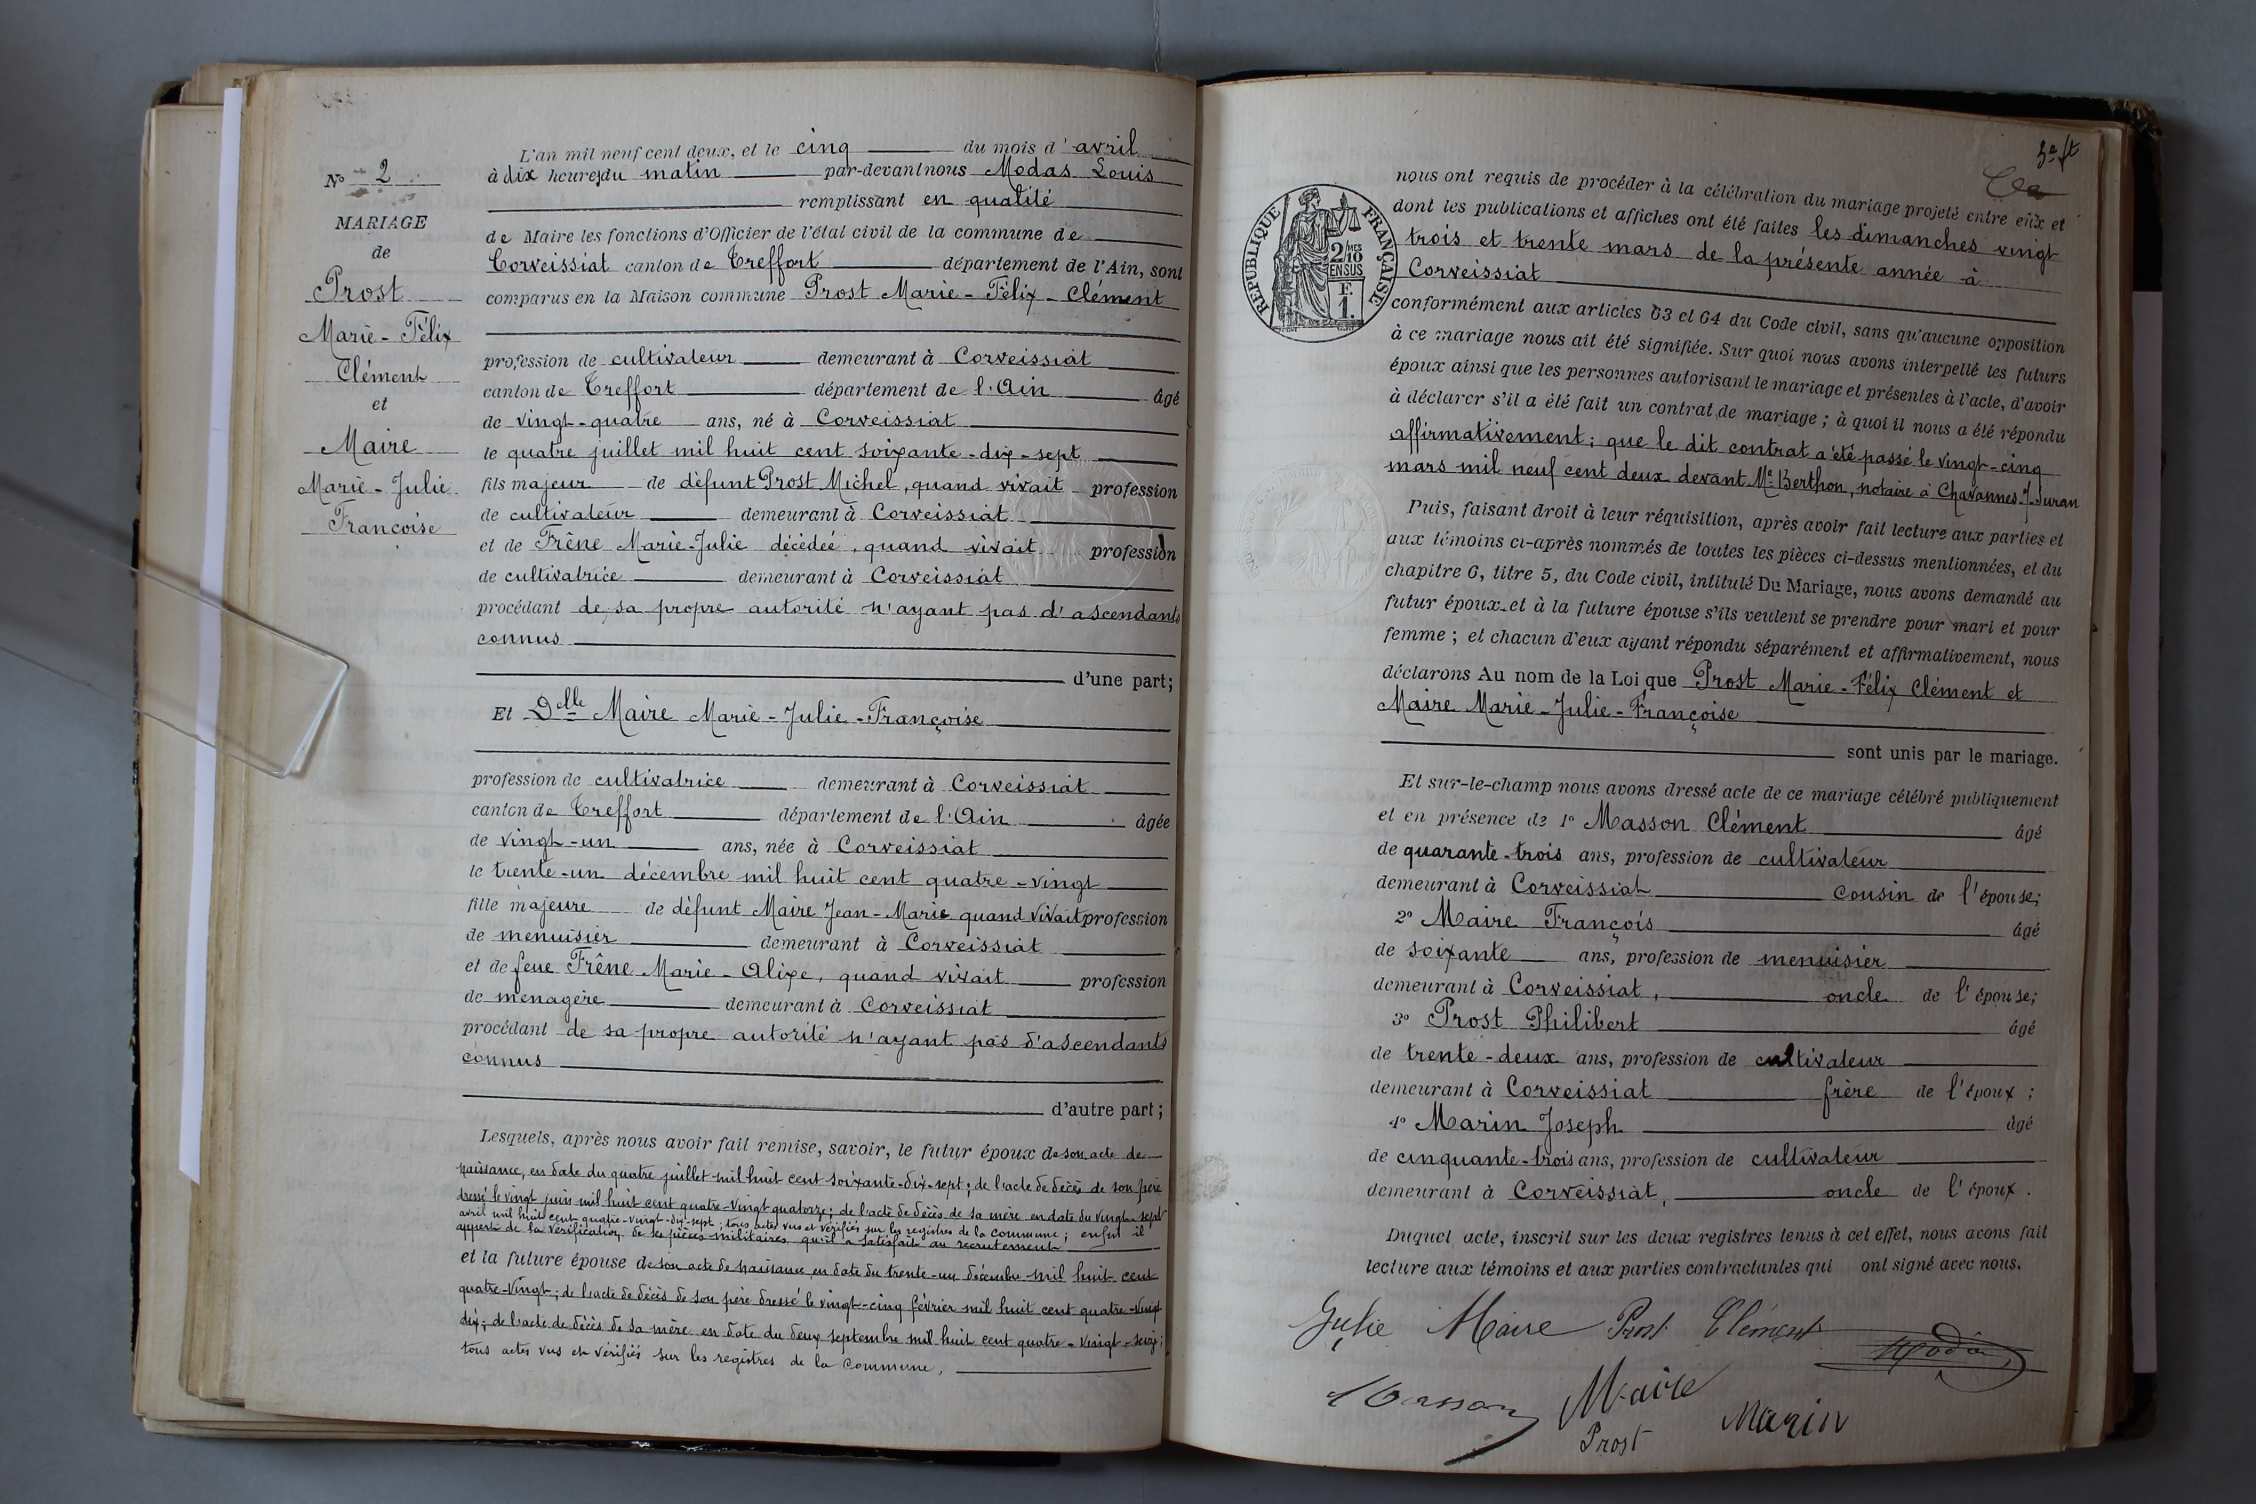 N° 2
MARIAGE
de
Prost
Marie-Félix
Clément
et
Maire
Marie-Julie
Françoise
L'an mil neuf cent deux, et le cinq du mois d'avril
à dix heures du matin par-devant nous Modas Louis
remplissant en qualité
de Maire les fonctions d'Officier de l'état civil de la commune de
Corveissiat canton de Treffort département de l'Ain, sont
comparus en la Maison commune Prost Marie-Félix-Clément
profession de cultivateur demeurant à Corveissiat
canton de Treffort département de l'Ain âgé
de vingt-quatre ans, né à Corveissiat
le quatre juillet mil huit cent soixante-dix-sept
fils majeur de défunt Prost Michel, quand vivait profession
de cultivateur demeurant à Corveissiat
et de Frêne Marie-Julie décédée, quand vivait profession
de cultivatrice demeurant à Corveissiat
procédant de sa propre autorité n'ayant pas d'ascendants
connus
d'une part;
Et Delle Maire Marie-Julie-Françoise
profession de cultivatrice demeurant à Corveissiat
canton de Treffort département de l'Ain âgée
de vingt-un ans, née à Corveissiat
le trente-un décembre mil huit cent quatre-vingt
fille majeure de défunt Maire Jean-Marie quand vivait profession
de menuisier demeurant à Corveissiat
et de feue Frêne Marie-Alixe, quand vivait profession
de menagère demeurant à Corveissiat
procédant de sa propre autorité n'ayant pas d'ascendants
connus
d'autre part;
Lesquels, après nous avoir fait remise, savoir, le futur époux de son acte de
naissance, en date du quatre juillet mil huit cent soixante-dix-sept; de l'acte de décès de son père
dressé le vingt juin mil huit cent quatre-vingt quatorze; de l'acte de décès de sa mère en date du vingt-sept
avril mil huit cent quatre-vingt-dix-sept; tous actes vus et vérifiés sur les registres de la commune; enfin il
appert de la vérification de ses pièces militaires qu'il a satisfait au recrutement
et la future épouse de son acte de naissance en date du trente-un décembre mil huit cent
quatre-vingt; de l'acte de décès de son père dressé le vingt-cinq février mil huit cent quatre-vingt
dix; de l'acte de décès de sa mère en date du deux septembre mil huit cent quatre-vingt-seize;
tous actes vus et vérifiés sur les registres de la commune,
RÉPUBLIQUE FRANÇAISE
2/10 MES
EN SUS
F.
1.
nous ont requis de procéder à la célébration du mariage projeté entre eux et
dont les publications et affiches ont été faites les dimanches vingt
trois et trente mars de la présente année à
Corveissiat
conformément aux articles 63 et 64 du Code civil, sans qu'aucune opposition
à ce mariage nous ait été signifiée. Sur quoi nous avons interpellé les futurs
époux ainsi que les personnes autorisant le mariage et présentes à l'acte, d'avoir
à déclarer s'il a été fait un contrat de mariage; à quoi il nous a été répondu
affirmativement; que le dit contrat a été passé le vingt-cinq
mars mil neuf cent deux devant Me Berthon, notaire à Chavannes s/ Suran
Puis, faisant droit à leur réquisition, après avoir fait lecture aux parties et
aux témoins ci-après nommés de toutes les pièces ci-dessus mentionnées, et du
chapitre 6, titre 5, du Code civil, intitulé Du Mariage, nous avons demandé au
futur époux et à la future épouse s'ils veulent se prendre pour mari et pour
femme; et chacun d'eux ayant répondu séparément et affirmativement, nous
déclarons Au nom de la Loi que Prost Marie-Félix Clément et
Maire Marie-Julie-Françoise
sont unis par le mariage.
Et sur-le-champ nous avons dressé acte de ce mariage célébré publiquement
et en présence de 1° Masson Clément âgé
de quarante-trois ans, profession de cultivateur
demeurant à Corveissiat cousin de l'épouse;
2° Maire François âgé
de soixante ans, profession de menuisier
demeurant à Corveissiat, oncle de l'épouse;
3° Prost Philibert âgé
de trente-deux ans, profession de cultivateur
demeurant à Corveissiat frère de l'époux;
4° Marin Joseph âgé
de cinquante-trois ans, profession de cultivateur
demeurant à Corveissiat, oncle de l'époux.
Duquel acte, inscrit sur les deux registres tenus à cet effet, nous avons fait
lecture aux témoins et aux parties contractantes qui ont signé avec nous.
Julie Maire Prost Clément Modas
Masson Maire Marin
Prost